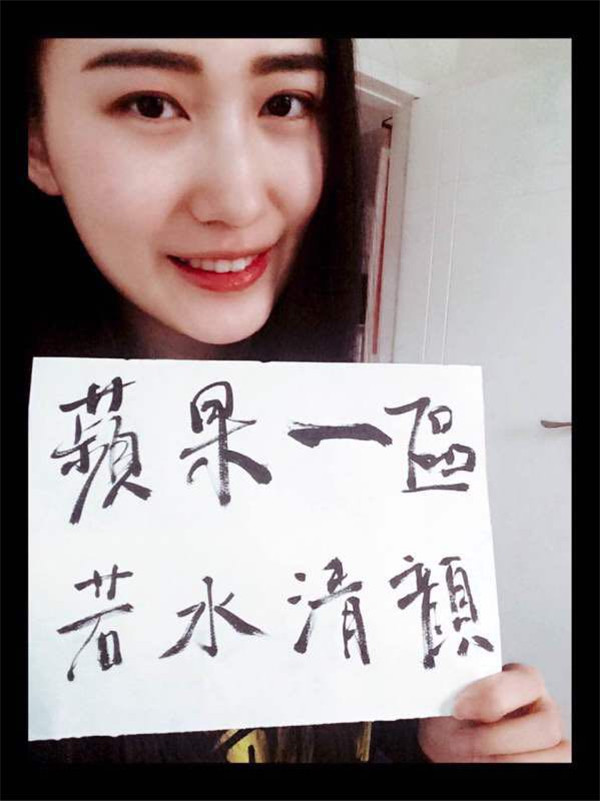 蘋果一區
若水清顏